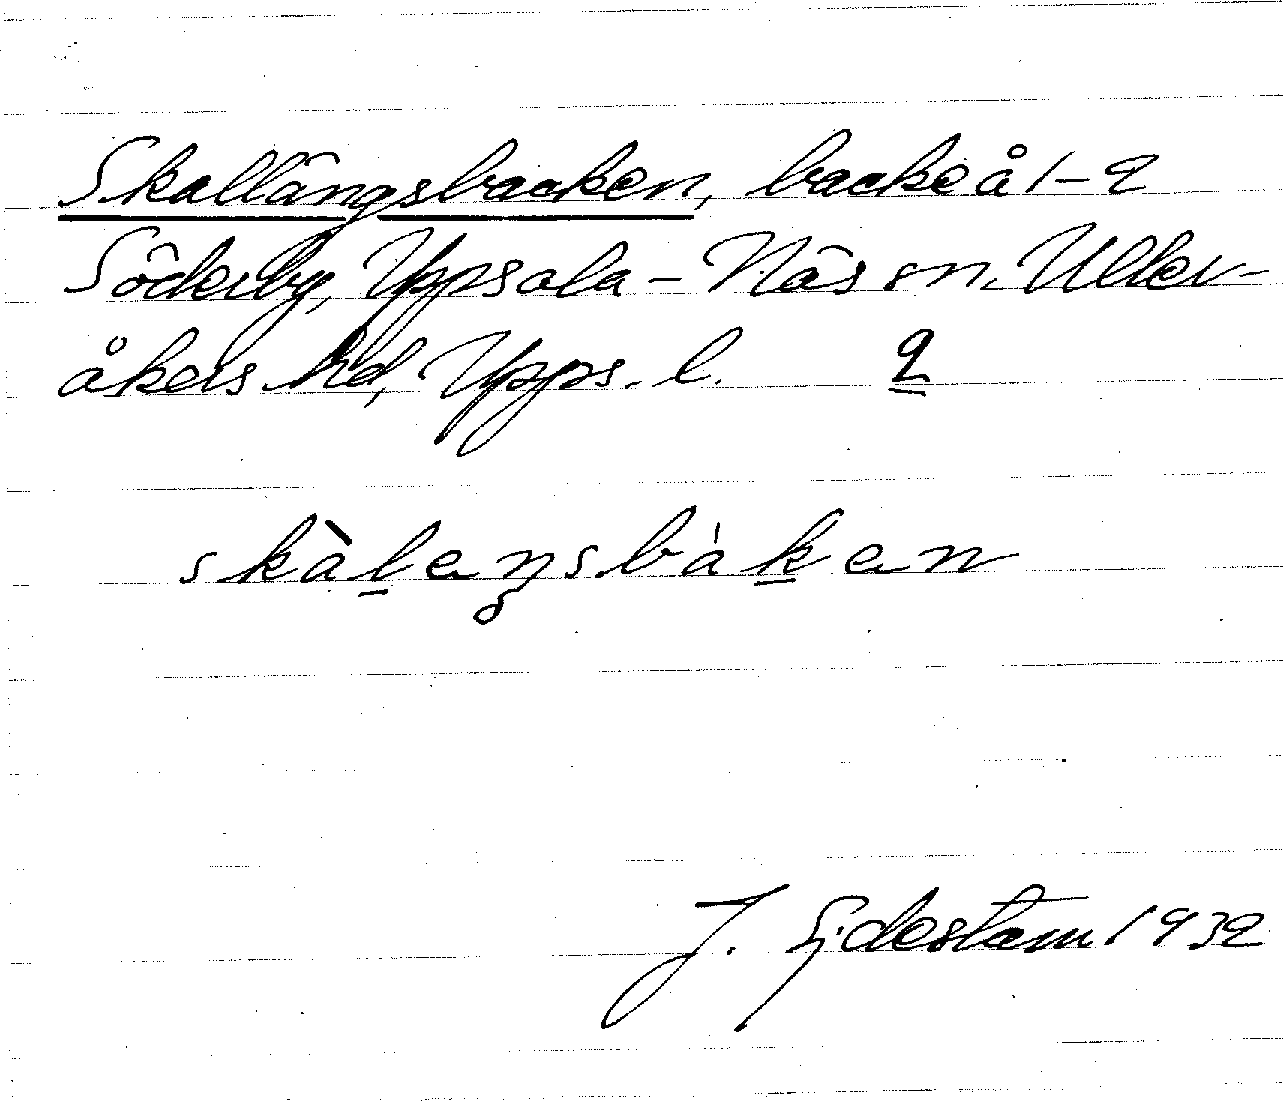 Skallängsbacken, backe å 1-2
Söderby, Uppsala-Näs sn. Uller-
åkers hd, Upps. l. 2
skàleŋsbàken
J. Gjdestam 1932